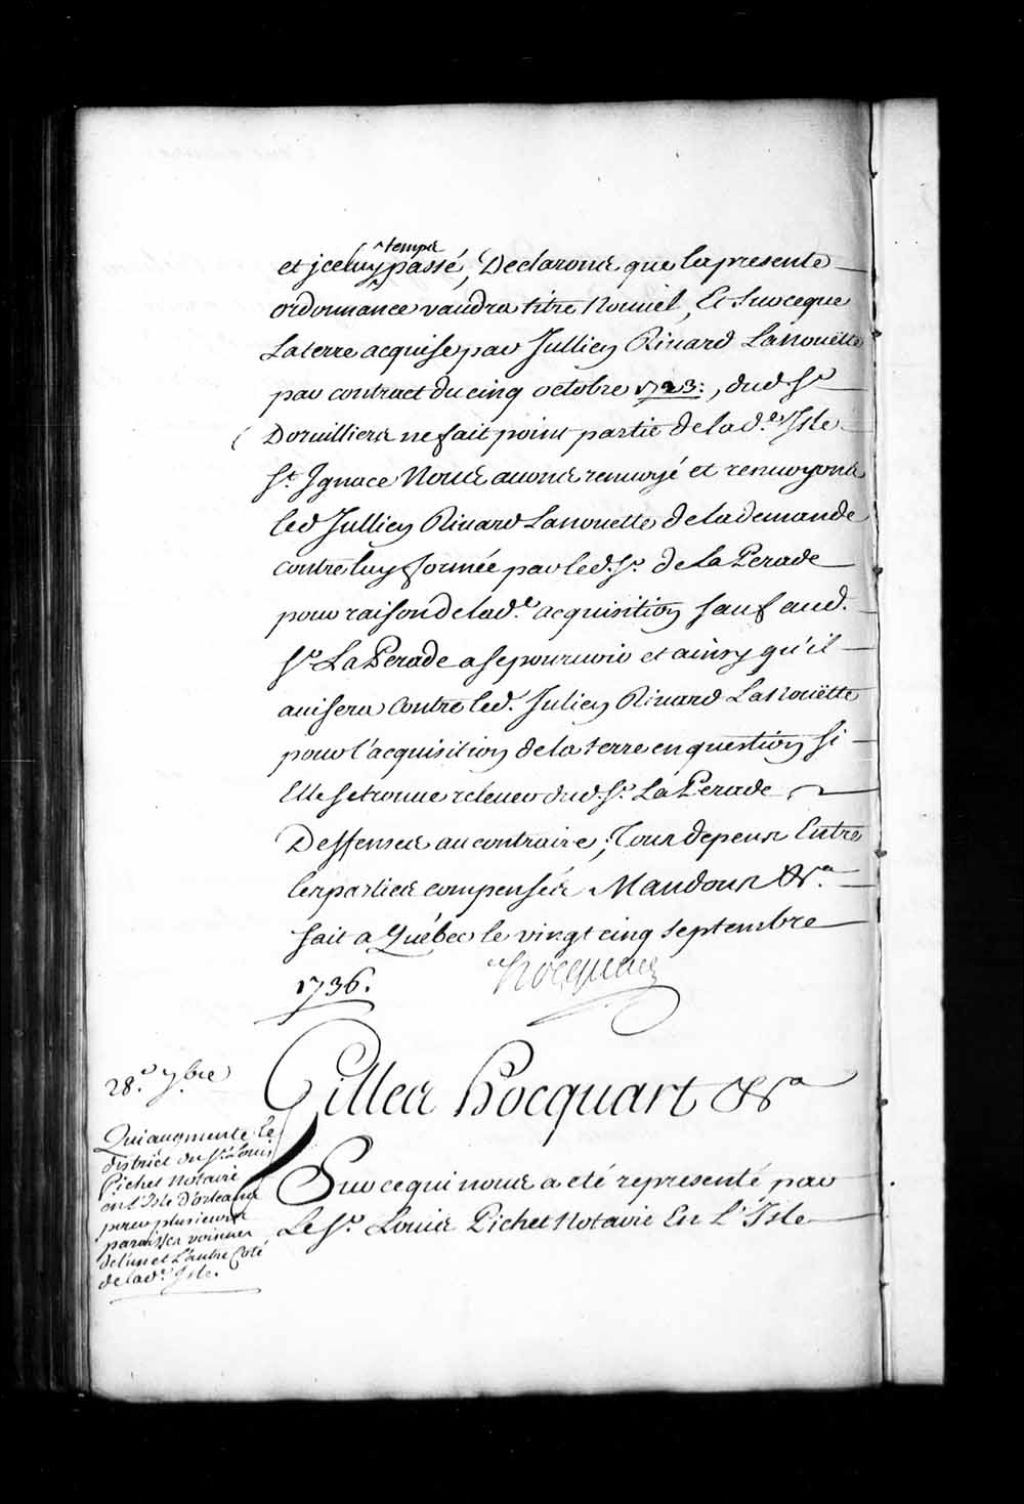 et jceluy ^temps passé, Declarons que la presente
ordonnance vaudra titre Nouuel, Et Sur ceque
La terre acquise par Jullien Riuard Lanouëtte
par contract du cinq octobre 1723:, dud. Sr.
Doruilliers ne fait point partie de lad.e Isle
St. Ignace Nous auons renuoyé et renuoyons
led Jullien Riuard Lanouette de la demande
contre luy formée par led. Sr. De La Perade
pour raison de lad.e acquisition sauf aud.
Sr. La Perade a se pouruoir et ainsy qu'il
auisera Contre led. Julien Riuard Lanouëtte
pour l'acquisition de la terre en question si
Elle se trouue releuer dud. Sr. La Perade
Deffenses au contraire, Tous depens Entre
les parties compensés Mandons &a.
fait a Québec le vingt cinq septembre
1736. Hocquart
28.e 7.bre
Gilles Hocquart &a
Qui augmente le
district du Sr. Louis
Pichet Notaire
en l'Isle D'orleans
pour plusieurs
paroisses voisines
de l'un et L'autre Coté
de lad.e Isle.
Sur ce qui nous a eté representé par
Le Sr. Louis Pichet Notaire En L'Isle